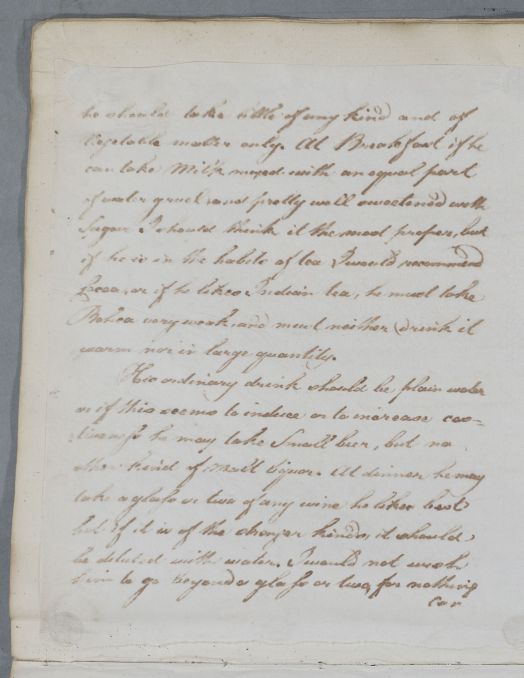 he should take little of any kind and of
vegetable matter only. At Breakfast if he
can take Milk mixed with an equal part
of water gruel and pretty well sweetened with
Sugar I should think it the most proper, but
if he is in the habits of tea I would recommend
or if he likes Indian tea, he must take
Bohea very weak and must neither drink it
warm nor in large quantity.
His ordinary drink should be plain water
or if this seems to induce or to increase cos=
tiveness he may take Small beer, but no
other kind of Malt liquor. At dinner he may
take a glass or two of any wine he likes best
but if it is of the stronger kinds it should
be diluted with water. I would not wish
him to go beyond a glass or two, for nothing
can